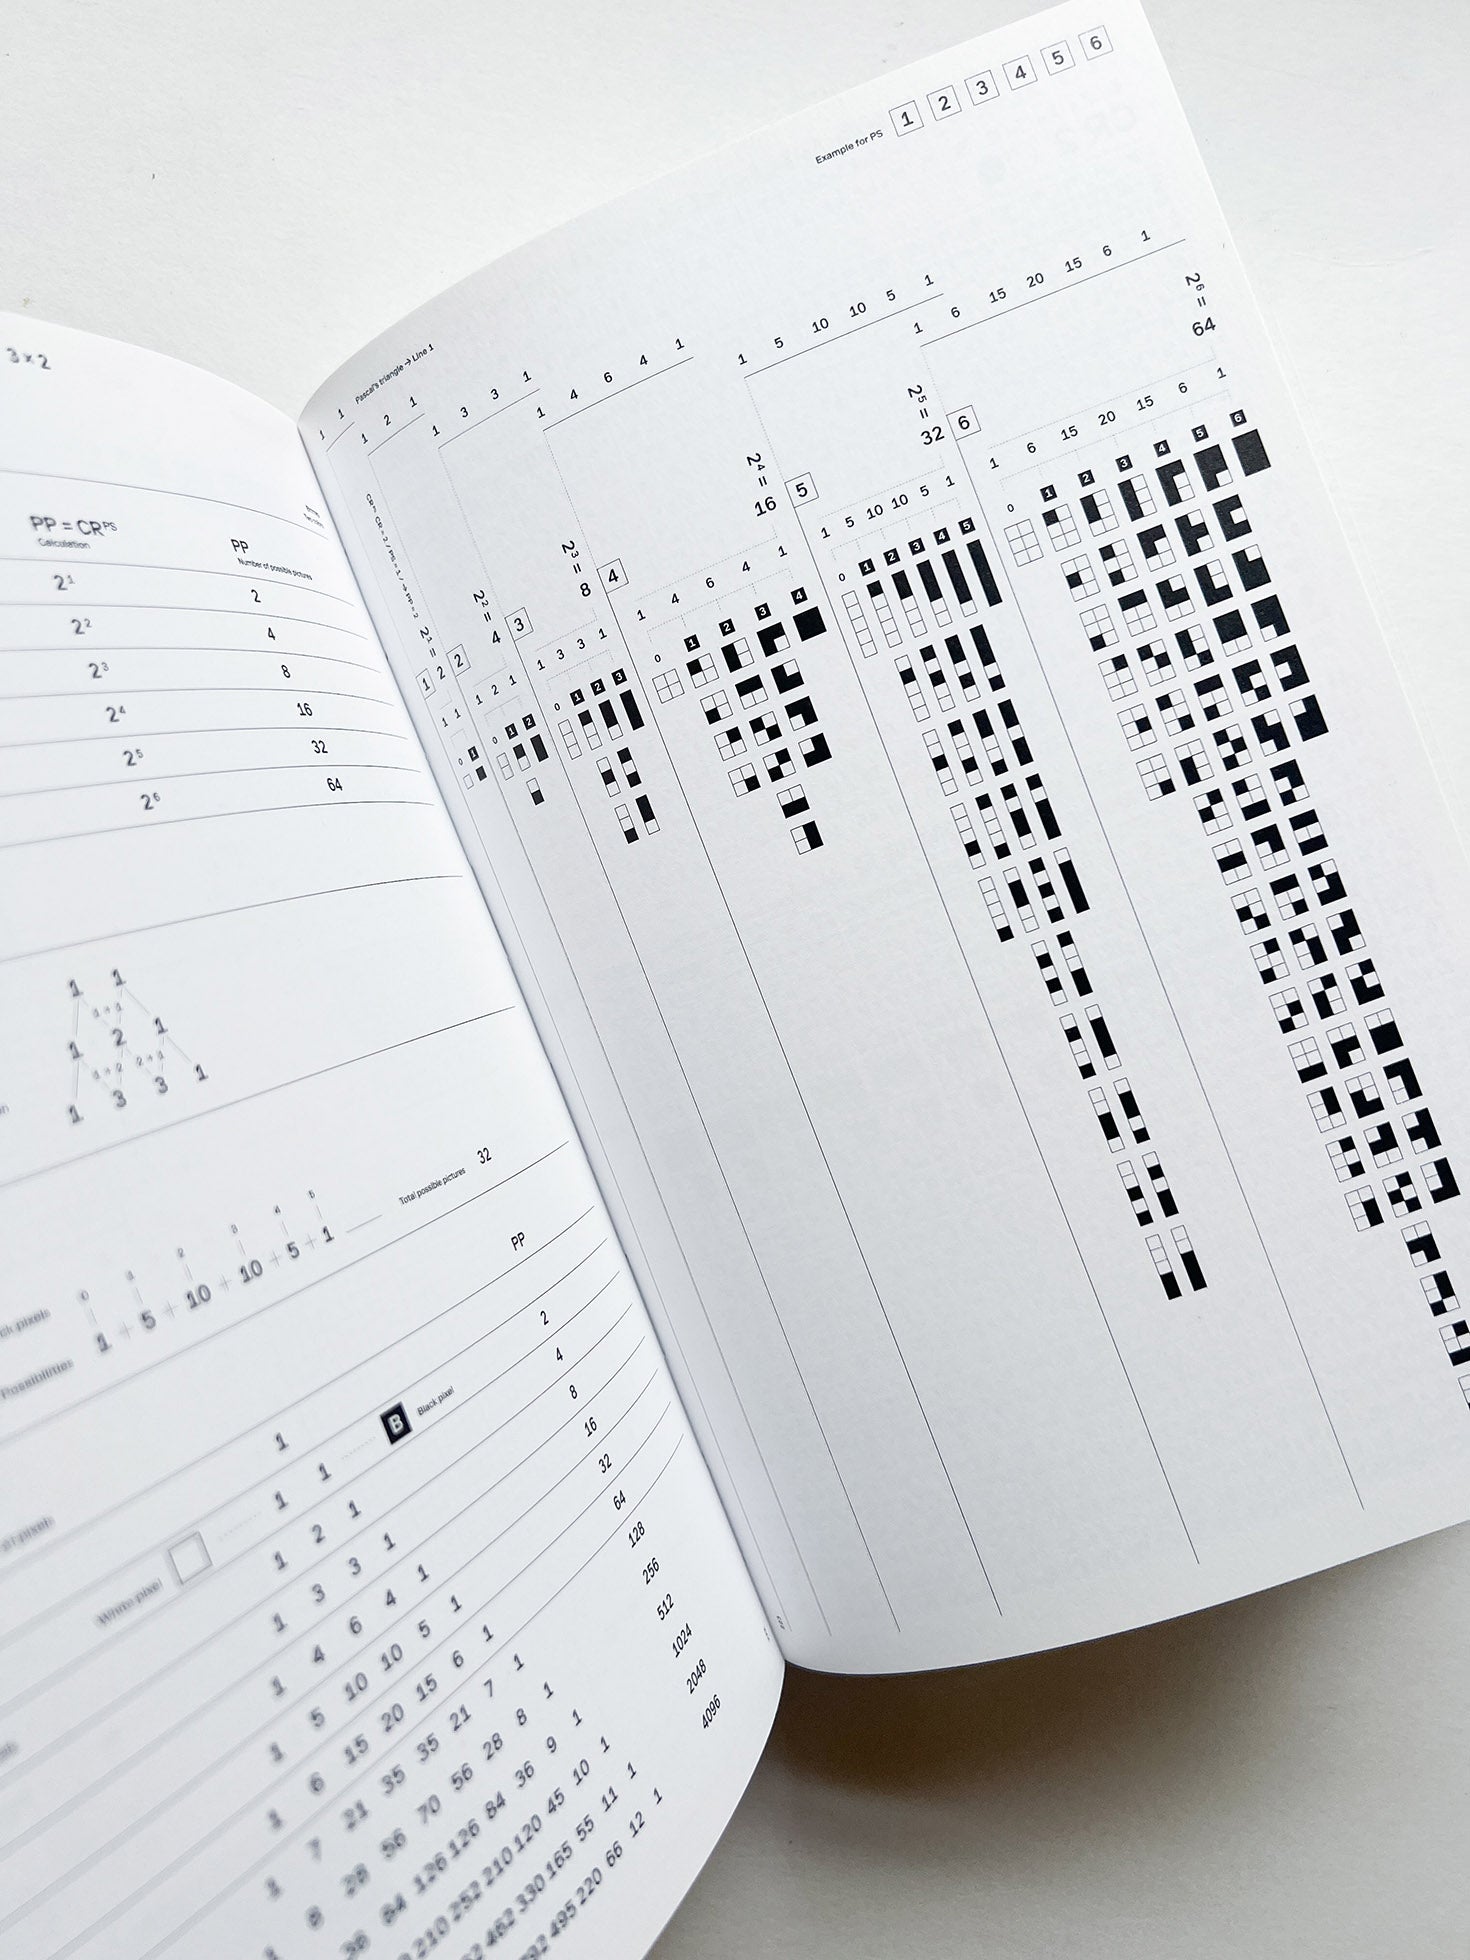 3×2
PP = CRᴾˢ
Calculation
PP
Number of possible pictures
2¹ 2
2² 4
2³ 8
2⁴ 16
2⁵ 32
2⁶ 64
1 1
1+1
1 2 1
1+2 2+1
1 3 3 1
0 1 2 3 4 5
Possibilities 1 + 5 + 10 + 10 + 5 + 1
Total possible pictures 32
PP
1
White pixel 1 1 B Black pixel 2
1 2 1 4
1 3 3 1 8
1 4 6 4 1 16
1 5 10 10 5 1 32
1 6 15 20 15 6 1 64
1 7 21 35 35 21 7 1 128
1 8 28 56 70 56 28 8 1 256
84 126 126 84 36 9 1 512
210 252 210 120 45 10 1 1024
462 330 165 55 11 1 2048
495 220 66 12 1 4096
Example for PS 1 2 3 4 5 6
Pascal's triangle → Line 1
1 1
1 2 1
1 3 3 1
1 4 6 4 1
1 5 10 10 5 1
1 6 15 20 15 6 1
1
2¹ =
2
1 1
0 1
2
2² =
4
1 2 1
0 1 2
3
2³ =
8
1 3 3 1
0 1 2 3
4
2⁴ =
16
1 4 6 4 1
0 1 2 3 4
5
2⁵ =
32
1 5 10 10 5 1
0 1 2 3 4 5
6
2⁶ =
64
1 6 15 20 15 6 1
0 1 2 3 4 5 6